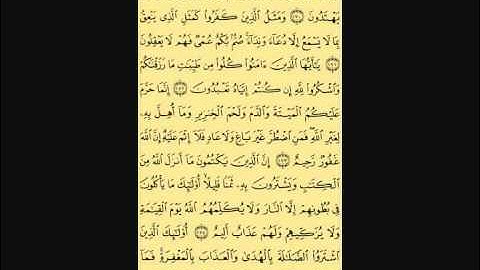 يَهْتَدُونَ ١٧٠ وَمَثَلُ الَّذِينَ كَفَرُوا كَمَثَلِ الَّذِي يَنْعِقُ
بِمَا لَا يَسْمَعُ إِلَّا دُعَاءً وَنِدَاءً صُمٌّ بُكْمٌ عُمْيٌ فَهُمْ لَا يَعْقِلُونَ
١٧١ يَا أَيُّهَا الَّذِينَ ءَامَنُوا كُلُوا مِن طَيِّبَاتِ مَا رَزَقْنَاكُمْ
وَاشْكُرُوا لِلَّهِ إِن كُنتُمْ إِيَّاهُ تَعْبُدُونَ ١٧٢ إِنَّمَا حَرَّمَ
عَلَيْكُمُ الْمَيْتَةَ وَالدَّمَ وَلَحْمَ الْخِنزِيرِ وَمَا أُهِلَّ بِهِ
لِغَيْرِ اللَّهِ فَمَنِ اضْطُرَّ غَيْرَ بَاغٍ وَلَا عَادٍ فَلَا إِثْمَ عَلَيْهِ إِنَّ اللَّهَ
غَفُورٌ رَّحِيمٌ ١٧٣ إِنَّ الَّذِينَ يَكْتُمُونَ مَا أَنزَلَ اللَّهُ مِنَ
الْكِتَابِ وَيَشْتَرُونَ بِهِ ثَمَنًا قَلِيلًا أُولَٰئِكَ مَا يَأْكُلُونَ
فِي بُطُونِهِمْ إِلَّا النَّارَ وَلَا يُكَلِّمُهُمُ اللَّهُ يَوْمَ الْقِيَامَةِ
وَلَا يُزَكِّيهِمْ وَلَهُمْ عَذَابٌ أَلِيمٌ ١٧٤ أُولَٰئِكَ الَّذِينَ
اشْتَرَوُا الضَّلَالَةَ بِالْهُدَىٰ وَالْعَذَابَ بِالْمَغْفِرَةِ فَمَا